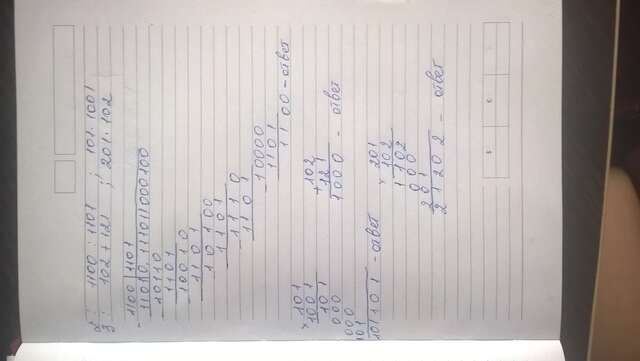 2: 1100 : 1101 ; 101 · 1001
3: 102 + 121 ; 201 · 102
1100 | 1101
11010, 111011000100
10110
1101
10010
1101
10100
1101
1110
1101
10000
1101
1100 - ответ
101
1001
101
000
000
101
101101 - ответ
102
+
121
1000 - ответ
201
102
1102
000
201
21202 - ответ